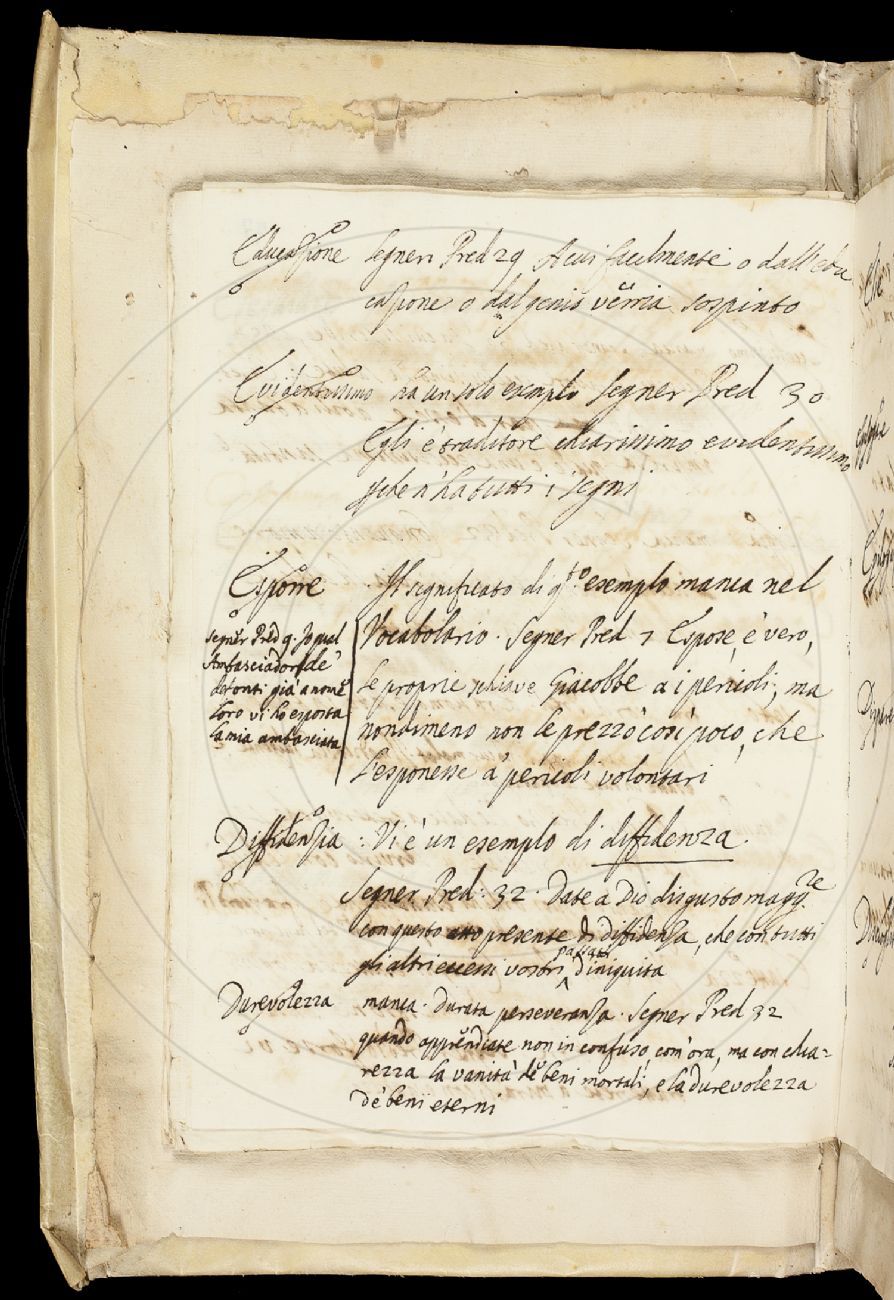 Educazione Segneri Pred 29 A cui facilmente o dall'edu
cazione o dal genio verria sospinto
Evidentissimo ha un solo exemplo Segner Pred 30
Egli è traditore chiarissimo evidentissimo
che n'ha tutti i segni
Esporre Il significato di q.to esemplo manca nel
Vocabolario. Segner Pred 7 Espose, è vero,
le proprie schiave Giacobbe a i pericoli; ma
nondimeno non le prezzò così poco, che
l'esponesse a' pericoli volontari
Segner Pred 9. Io quel
Ambasciadore de'
defonti già a nome
loro vi ho esposta
la mia ambasciata
Diffidenzia : Vi è un esemplo di diffidenza.
Segner Pred: 32. Date a Dio disgusto magg.re
con questo atto presente di diffidenza, che con tutti
gli altri eccessi vostri passati d'iniquita
Durevolezza manca. Durata perseveranza. Segner Pred 32
quando apprendiate non in confuso, com'ora, ma con chia=
rezza la vanità de' beni mortali, e la durevolezza
de' beni eterni